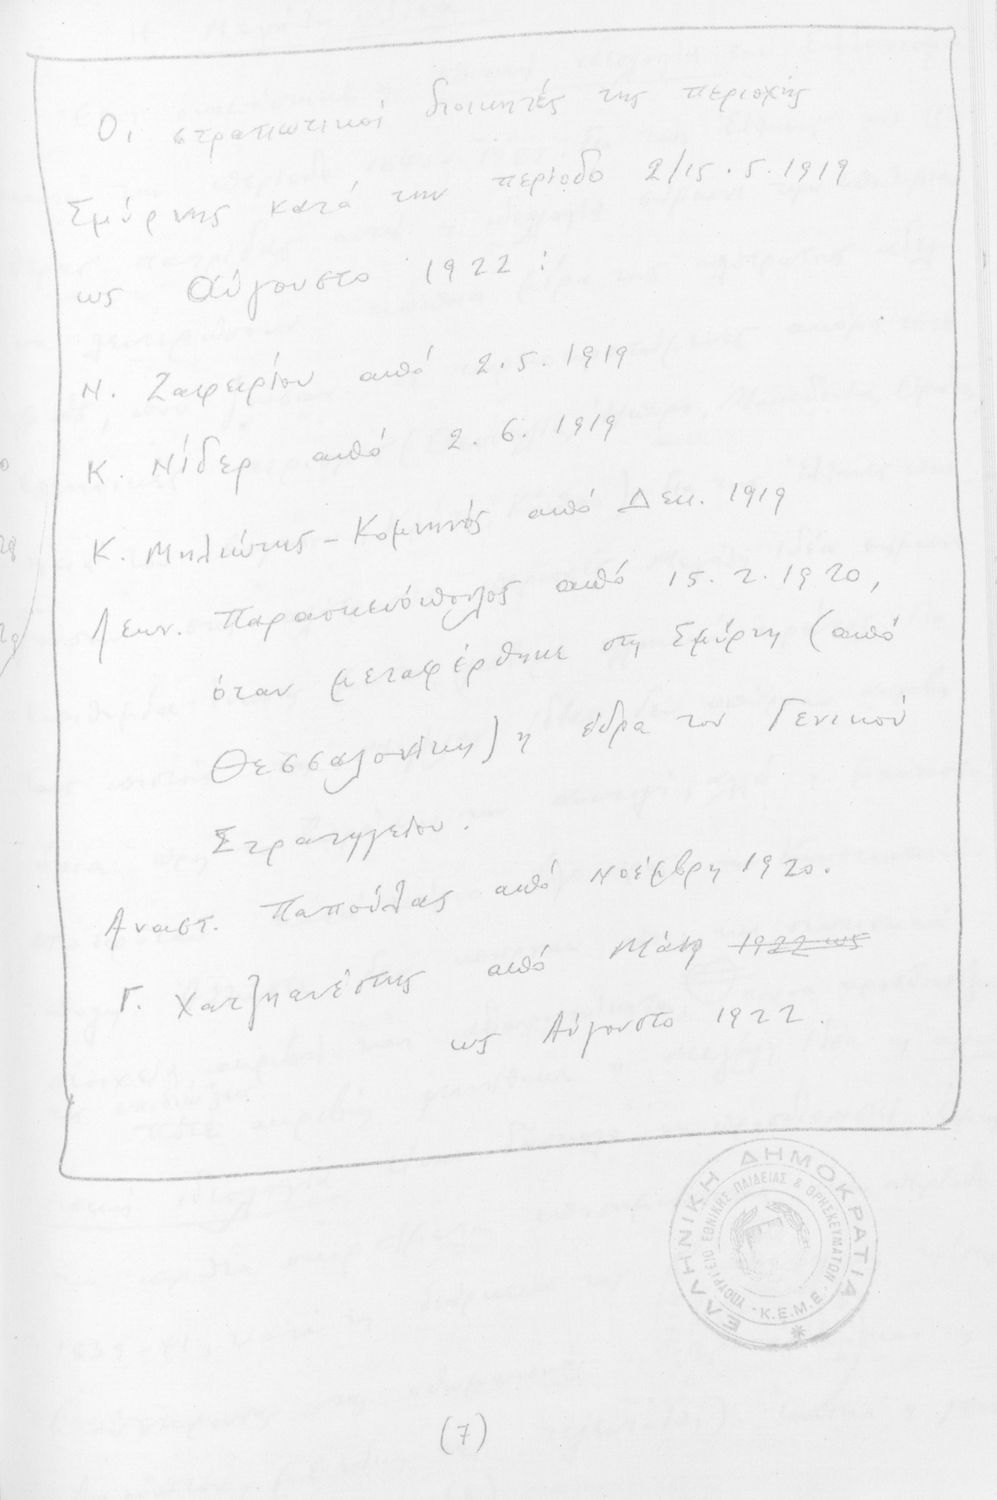 Οι στρατιωτικοί διοικητές της περιοχής
Σμύρνης κατά την περίοδο 2/15.5.1919
ως Αύγουστο 1922:
Ν. Ζαφειρίου από 2.5.1919
Κ. Νίδερ από 2.6.1919
Κ. Μηλιώτης-Κομνηνός από Δεκ. 1919
Λεων. Παρασκευόπουλος από 15.2.1920,
όταν μεταφέρθηκε στη Σμύρνη (από
Θεσσαλονίκη) η έδρα του Γενικού
Στρατηγείου.
Αναστ. Παπούλας από Νοέμβρη 1920.
Γ. Χατζηανέστης από Μάη 1922 ως
ως Αύγουστο 1922.
ΕΛΛΗΝΙΚΗ ΔΗΜΟΚΡΑΤΙΑ
ΥΠΟΥΡΓΕΙΟ ΕΘΝΙΚΗΣ ΠΑΙΔΕΙΑΣ & ΘΡΗΣΚΕΥΜΑΤΩΝ
- Κ.Ε.Μ.Ε. -
(7)